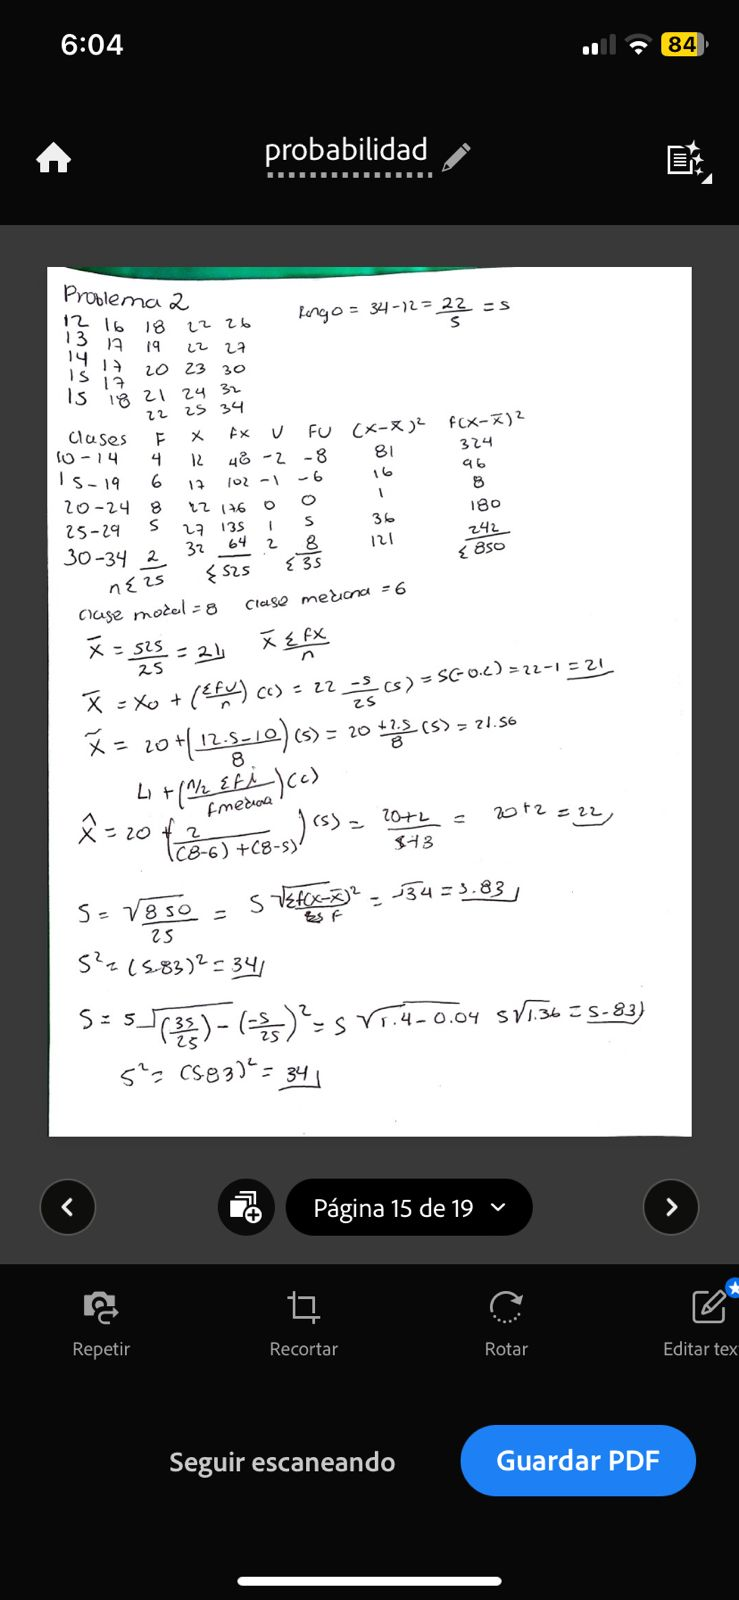 6:04
84
probabilidad
Problema 2
12 16 18 22 26
Rango = 34-12 = 22/5 = 5
13 17 19 22 27
14 17 20 23 30
15 17
15 18 21 24 32
22 25 34
Clases F X fx U FU (x-x̄)² f(x-x̄)²
10-14 4 12 48 -2 -8 81 324
15-19 6 17 102 -1 -6 16 96
20-24 8 22 176 0 0 1 8
25-29 5 27 135 1 5 36 180
30-34 2 32 64 2 8 121 242
n Σ 25 Σ 525 Σ 35 Σ 850
Clase modal = 8 Clase mediana = 6
x̄ = 525/25 = 21 x̄ Σfx/n
x̄ = x₀ + (Σfu/n) (c) = 22 -5/25 (5) = 5(-0.2) = 22-1 = 21
x̃ = 20+(12.5-10/8)(5) = 20 +2.5/8 (5) = 21.56
Li + (n/2 Σfi/fmediana)(c)
x̂ = 20 + (2/(8-6)+(8-5))(5) = 20+2/ = 20+2 = 22
S = √850/25 = S √Σf(x-x̄)²/F = √34 = 5.83
S² = (5.83)² = 34
S = 5 √(35/25) - (-5/25)² = 5 √1.4-0.04 5√1.36 = 5-83
S² = (5.83)² = 34
Página 15 de 19
Repetir
Recortar
Rotar
Editar tex
Seguir escaneando
Guardar PDF